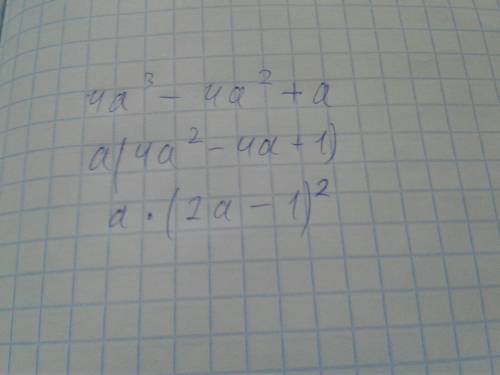 4a³ - 4a² + a
a(4a² - 4a + 1)
a · (2a - 1)²